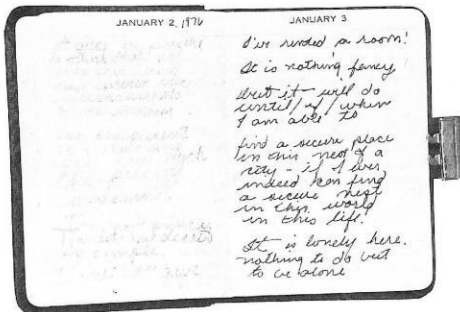 JANUARY 2, 1976
JANUARY 3
I've rented a room!
It is nothing fancy
but it will do
until/if/when
I am able to
find a secure place
in this nest of a
city - if I ever
indeed can find
a secure nest
in this world
in this life.
It is lonely here.
nothing to do but
to be alone